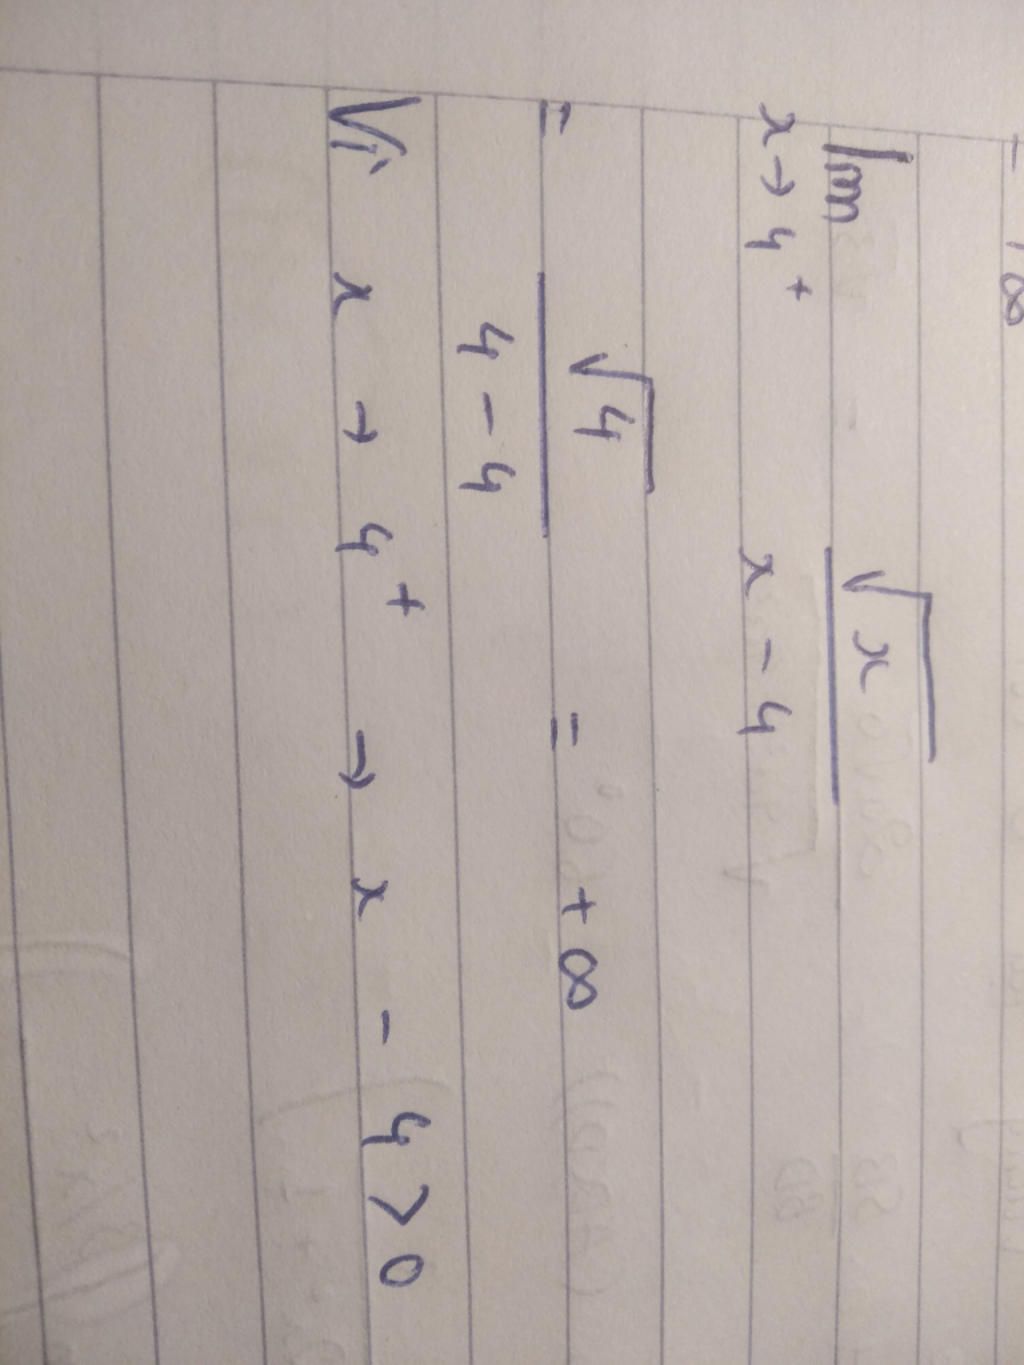 - ∞
lim x→4⁺ √x / (x - 4)
= √4 / (4 - 4) = +∞
Vì x → 4⁺ → x - 4 > 0